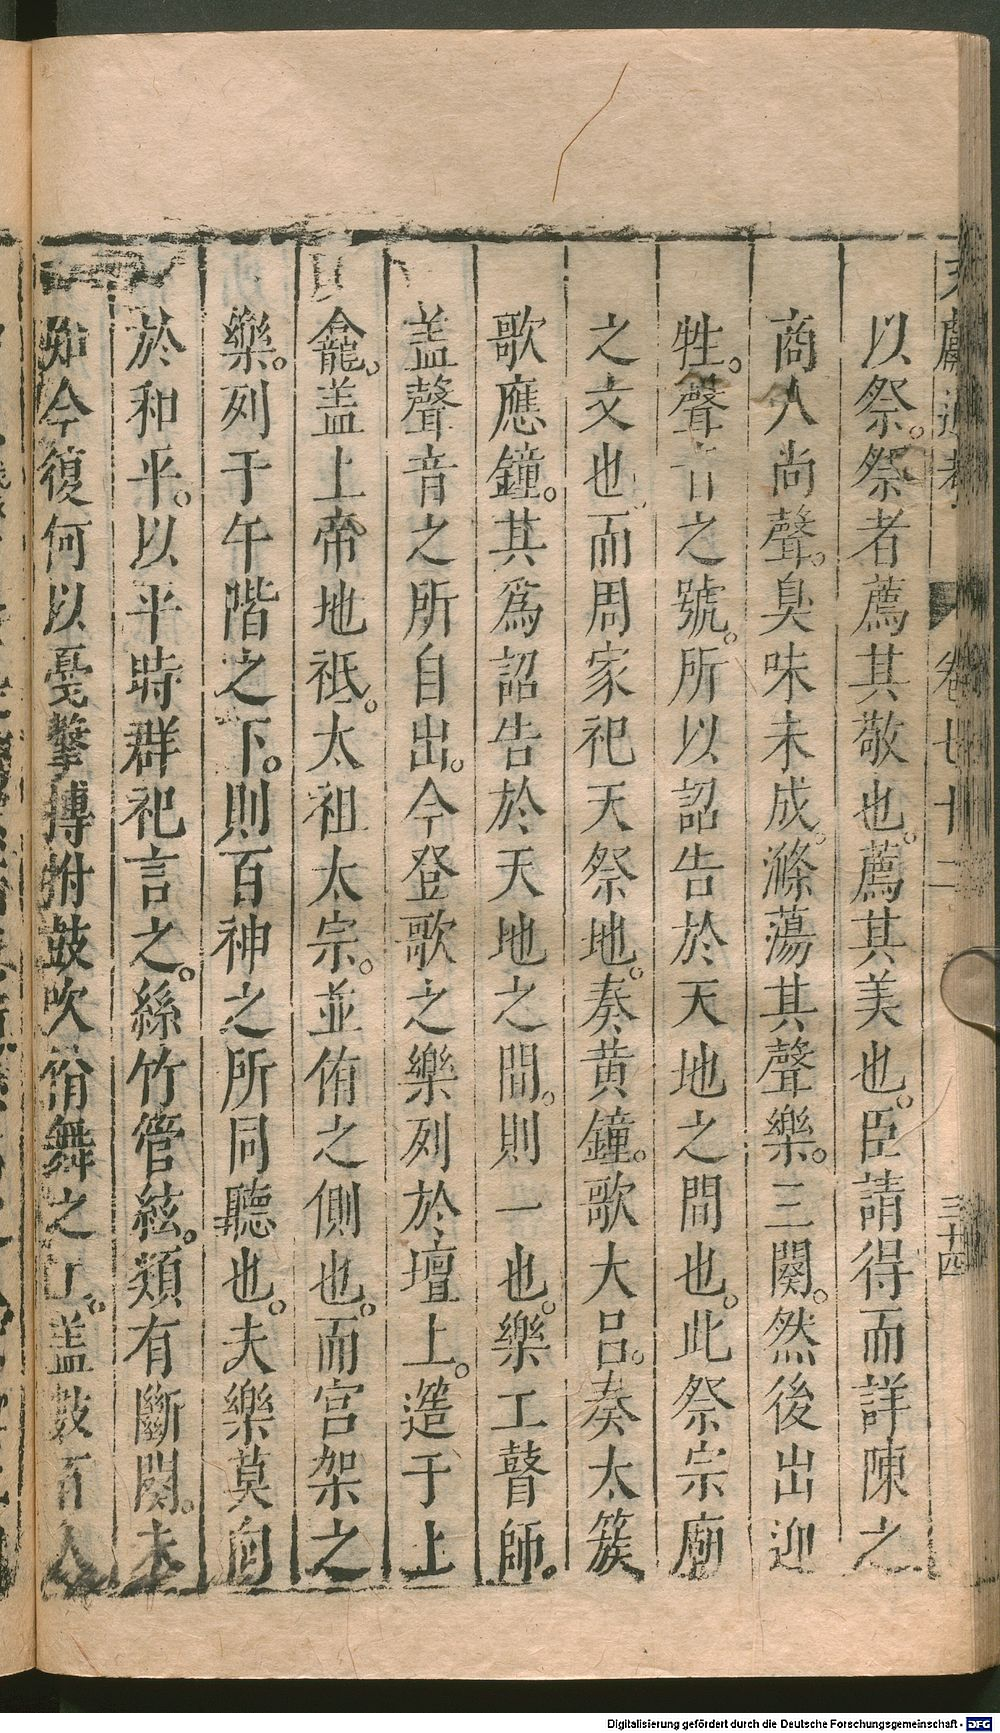 以祭。祭者薦其敬也。薦其美也。臣請得而詳陳之
商人尚聲。臭味未成。滌蕩其聲樂。三闋。然後出迎
牲。聲音之號。所以詔告於天地之間也。此祭宗廟
之文也。而周家祀天祭地。奏黃鐘。歌大呂。奏太簇
歌應鐘。其爲詔告於天地之間。則一也。樂工瞽師。
蓋聲音之所自出。今登歌之樂列於壇上。簉于上
龕。蓋上帝地祇。太祖太宗。並侑之側也。而宮架之
樂。列于午階之下。則百神之所同聽也。夫樂莫尚
於和平。以平時群祀言之。絲竹管絃。類有斷闋。未
知今復何以戞擊搏拊鼓吹佾舞之工。蓋數百人
卷七十二
三十四
Digitalisierung gefördert durch die Deutsche Forschungsgemeinschaft - DFG